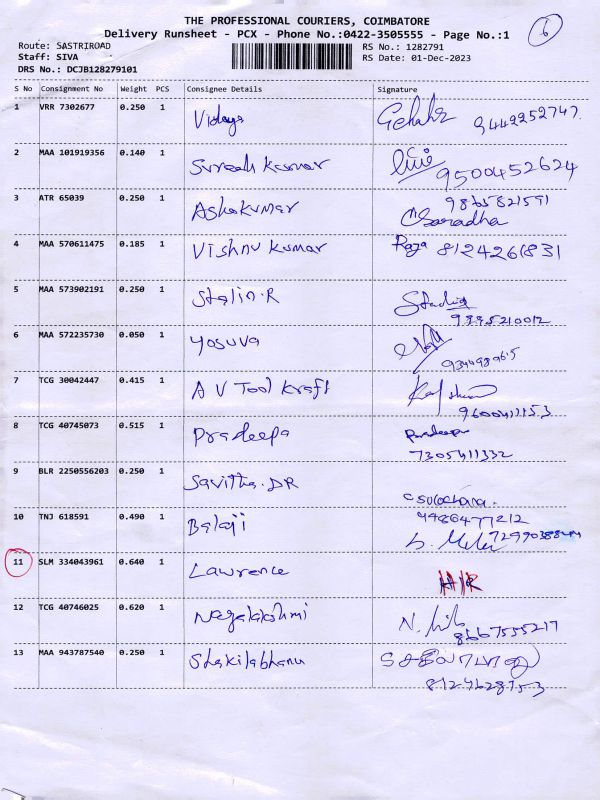 THE PROFESSIONAL COURIERS, COIMBATORE
Delivery Runsheet - PCX - Phone No.:0422-3505555 - Page No.:1
6
Route: SASTRIROAD
RS No.: 1282791
Staff: SIVA
RS Date: 01-Dec-2023
DRS No.: DCJB128279101
S No Consignment No Weight PCS Consignee Details Signature
1 VRR 7302677 0.250 1 Vidaya 9449252747.
2 MAA 101919356 0.140 1 Suresh Kumar 9500452624
3 ATR 65039 0.250 1 Ashokumar 9865821591
Saradha
4 MAA 570611475 0.185 1 Vishnu Kumar Raja 8124261831
5 MAA 573902191 0.250 1 Stalin.R
9995210012
6 MAA 572235730 0.050 1 Yosuva
9344989615
7 TCG 30042447 0.415 1 A V Tool Kraft
9600411153
8 TCG 40745073 0.515 1 Pradeepa Pradeepa
7305411332
9 BLR 2250556203 0.250 1 Savitha.DR
C Sulochana.
10 TNJ 618591 0.490 1 Balaji 9986477212
11 SLM 334043961 0.640 1 Lawrence
12 TCG 40746025 0.620 1 Nagalakshmi
8667555217
13 MAA 943787540 0.250 1 Shakilabhanu
8124628753